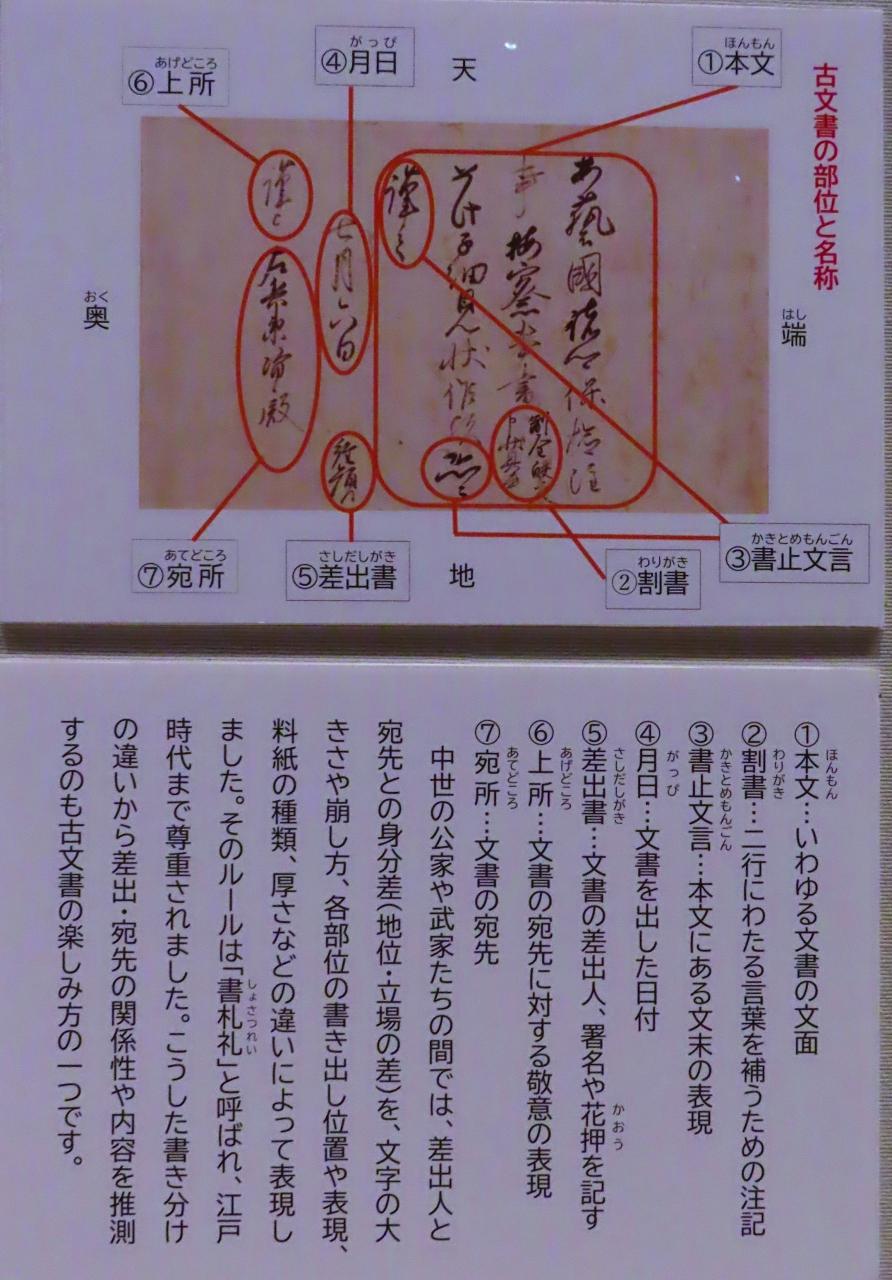 古文書の部位と名称
天
地
端
はし
奥
おく
①本文
ほんもん
②割書
わりがき
③書止文言
かきとめもんごん
④月日
がっぴ
⑤差出書
さしだしがき
⑥上所
あげどころ
⑦宛所
あてどころ
七月六日
①本文…いわゆる文書の文面
ほんもん
②割書…二行にわたる言葉を補うための注記
わりがき
③書止文言…本文にある文末の表現
かきとめもんごん
④月日…文書を出した日付
がっぴ
⑤差出書…文書の差出人、署名や花押を記す
さしだしがき
かおう
⑥上所…文書の宛先に対する敬意の表現
あげどころ
⑦宛所…文書の宛先
あてどころ
中世の公家や武家たちの間では、差出人と
宛先との身分差(地位・立場の差)を、文字の大
きさや崩し方、各部位の書き出し位置や表現、
料紙の種類、厚さなどの違いによって表現し
ました。そのルールは「書札礼」と呼ばれ、江戸
しょさつれい
時代まで尊重されました。こうした書き分け
の違いから差出・宛先の関係性や内容を推測
するのも古文書の楽しみ方の一つです。